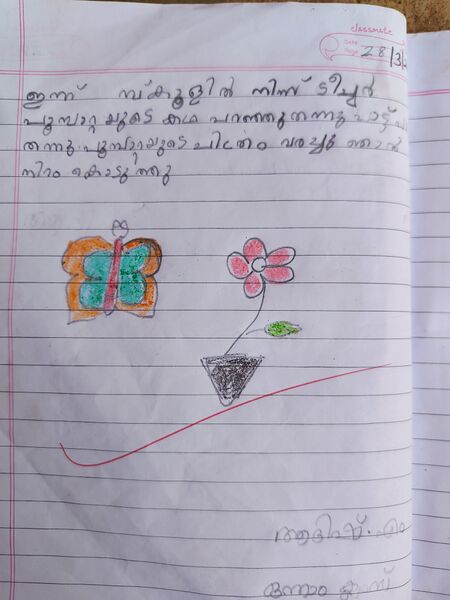 classmate
Date
Page
28/3/
ഇന്ന് സ്കൂളിൽ നിന്ന് ടീച്ചർ
പൂമ്പാറ്റയുടെ കഥ പറഞ്ഞു തന്നു പാട്ട്
തന്നു പൂമ്പാറ്റയുടെ ചിത്രം വരച്ചു ഞാൻ
നിറം കൊടുത്തു
ഒന്നാം ക്ലാസ്